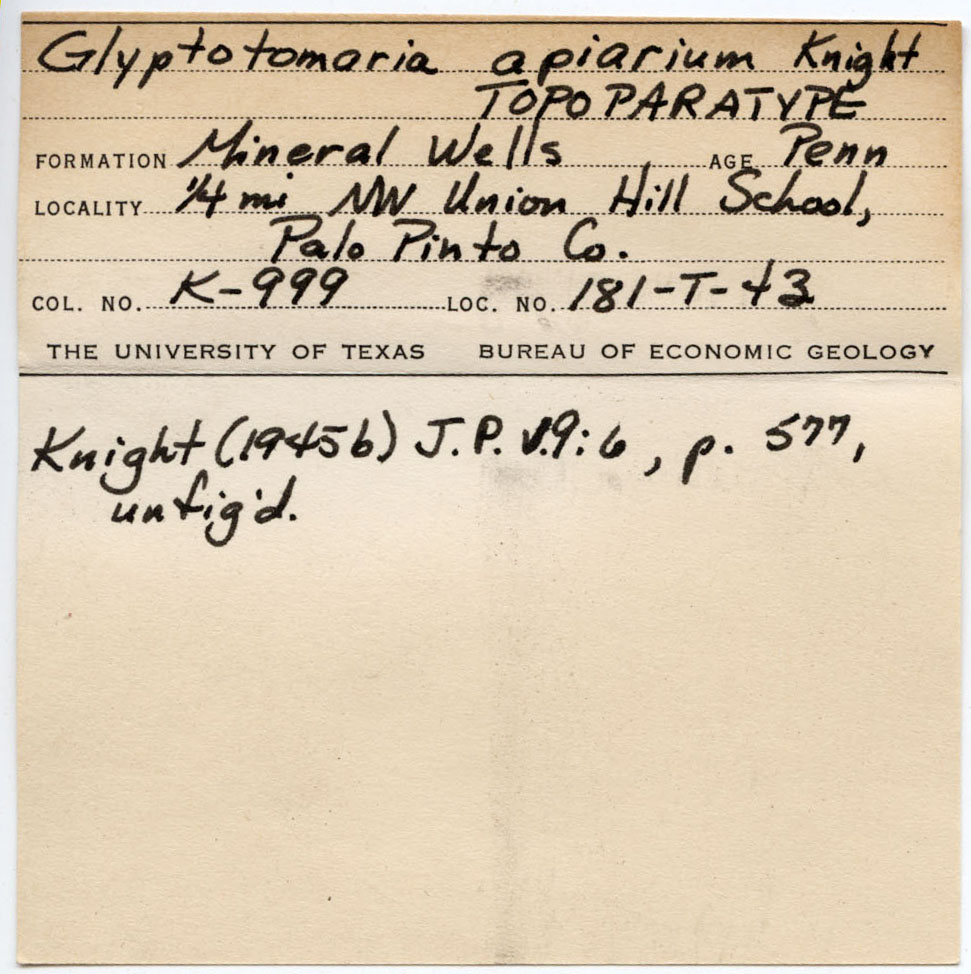 Glyptotomaria apiarium Knight
TOPOPARATYPE
FORMATION Mineral Wells AGE Penn
LOCALITY 1/4 mi NW Union Hill School,
Palo Pinto Co.
COL. NO. K-999 LOC. NO. 181-T-43
THE UNIVERSITY OF TEXAS BUREAU OF ECONOMIC GEOLOGY
Knight (1945b) J.P. v.9:6, p. 577,
unfig'd.